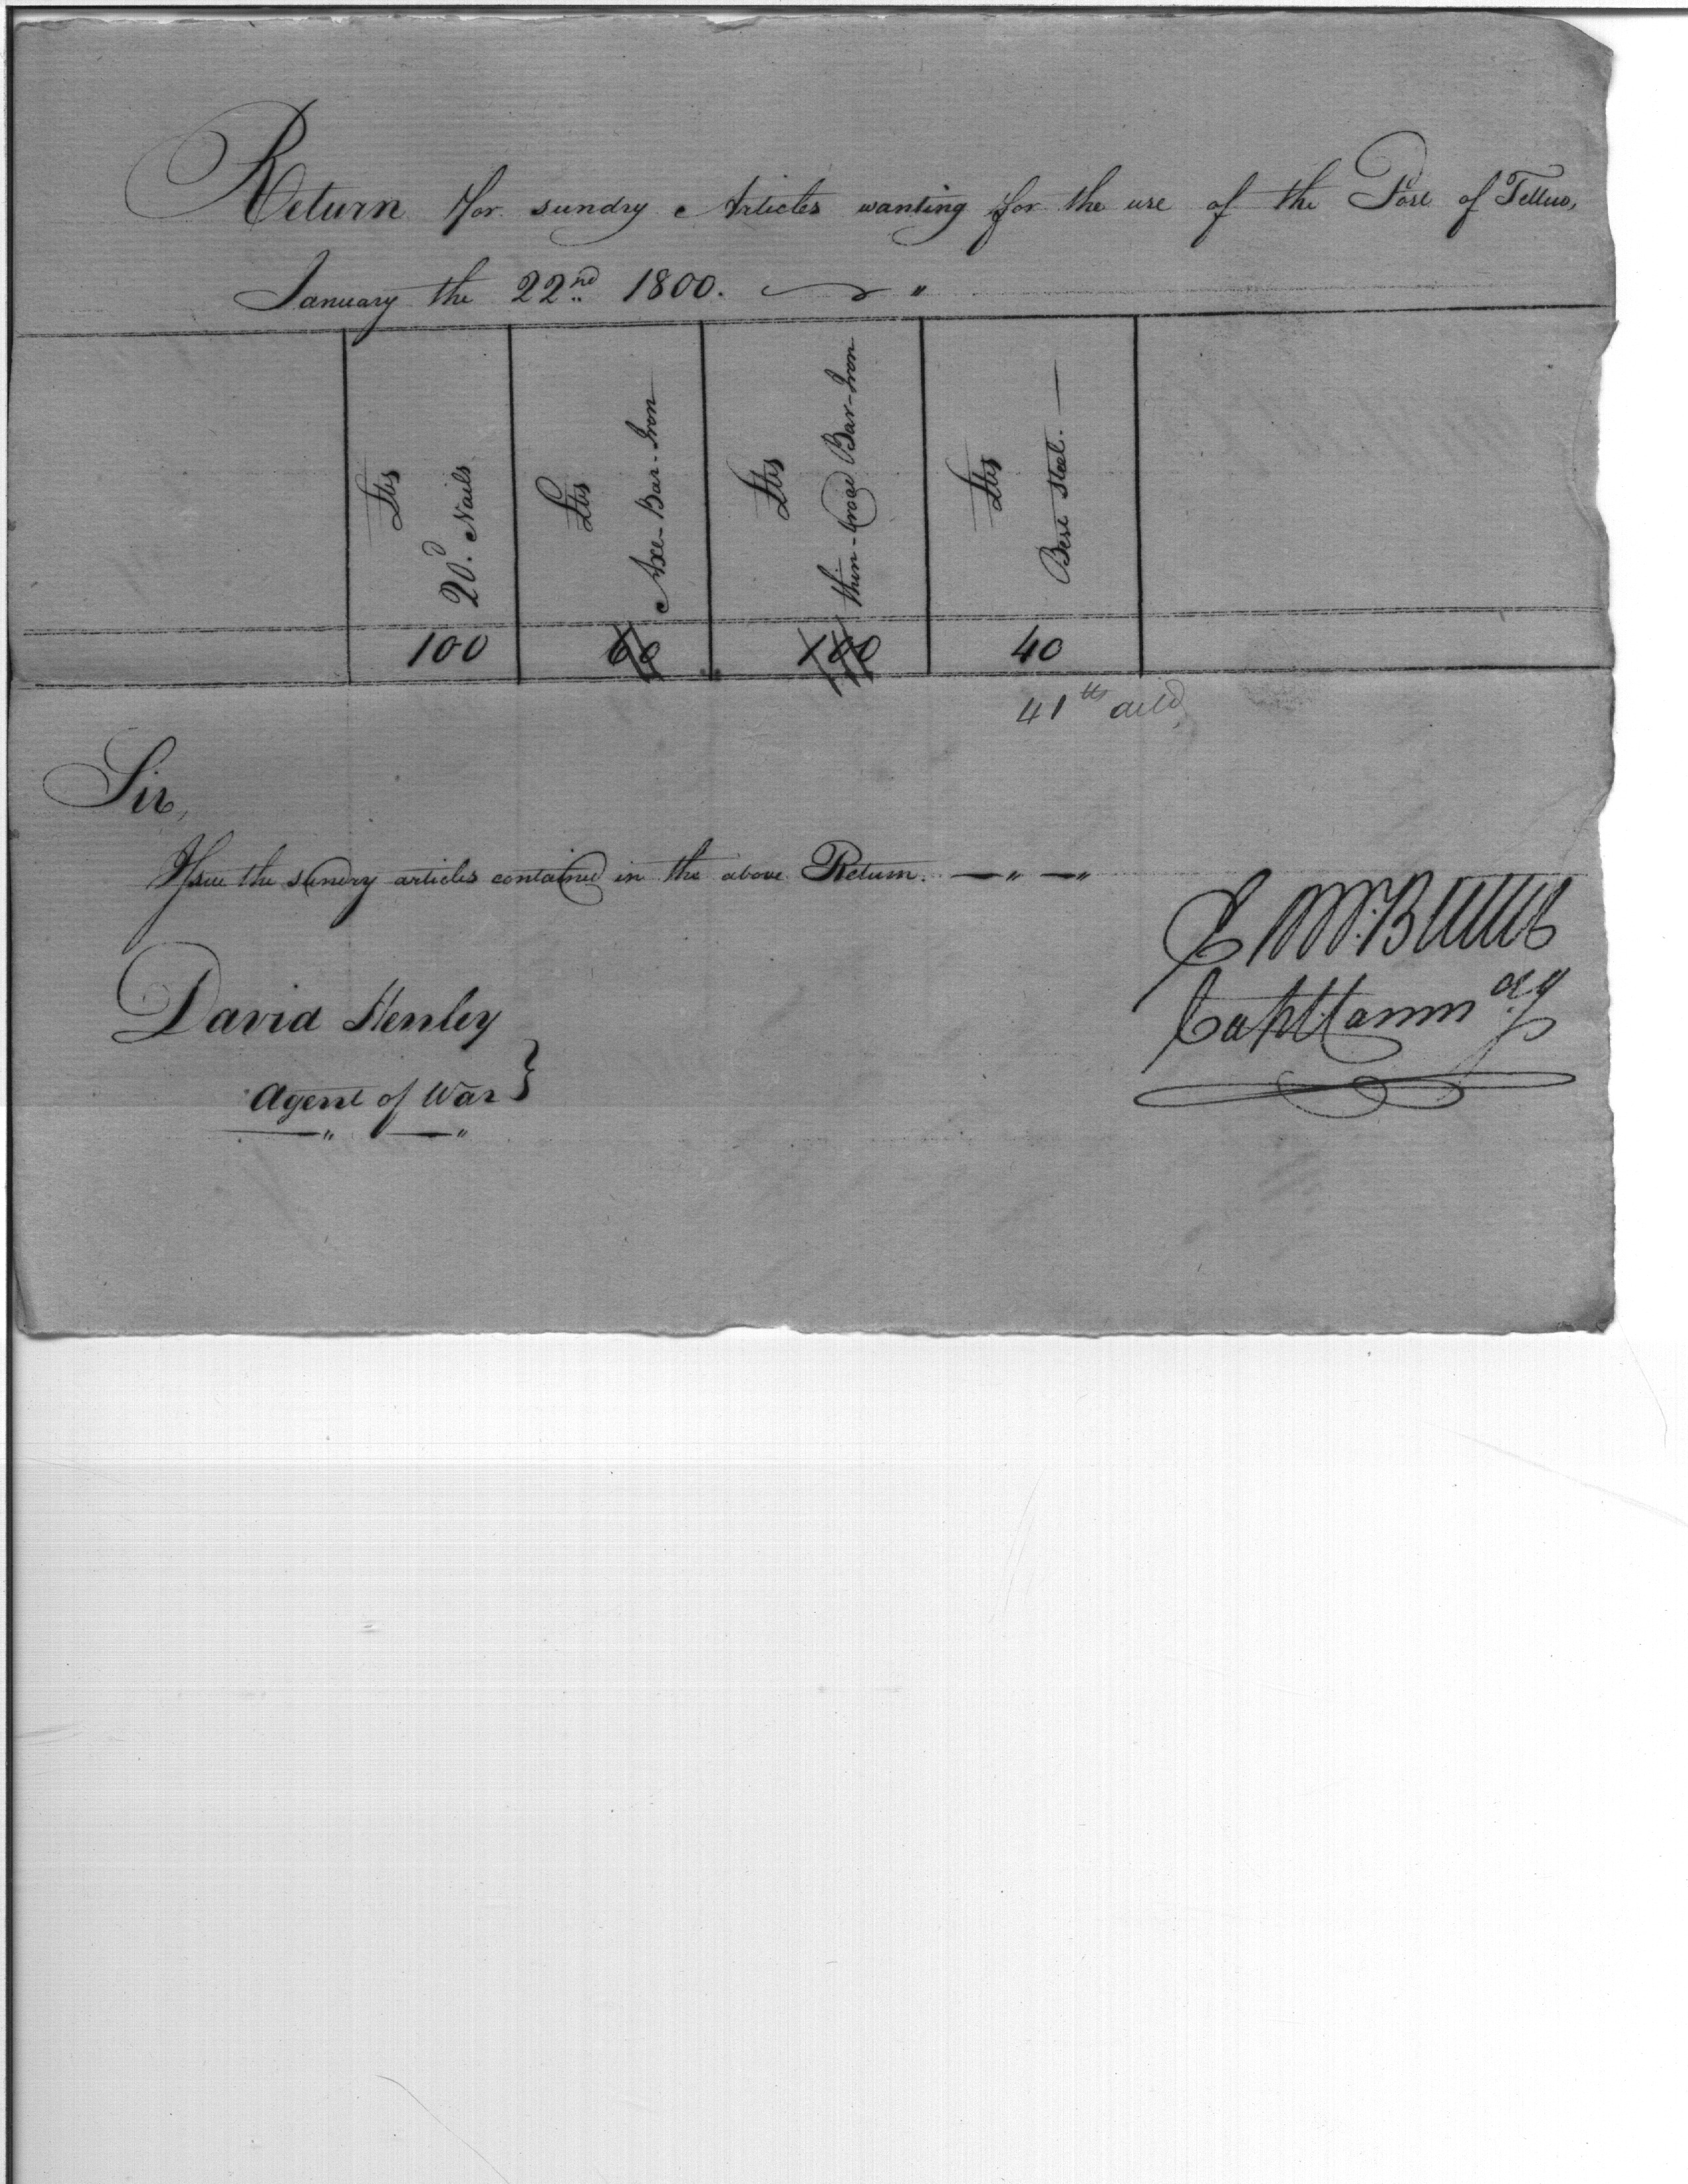 Return for sundry Articles wanting for the use of the Post of Tellico,
January the 22nd 1800.
lbs 20d. Nails
lbs Axe-Bar-Iron
lbs thin-broad Bar-Iron
lbs Best Steel.
100 60 100 40
41 lbs
Sir,
Issue the sundry articles contained in the above Return.
E Butler
Capt Commdg
David Henley
Agent of War